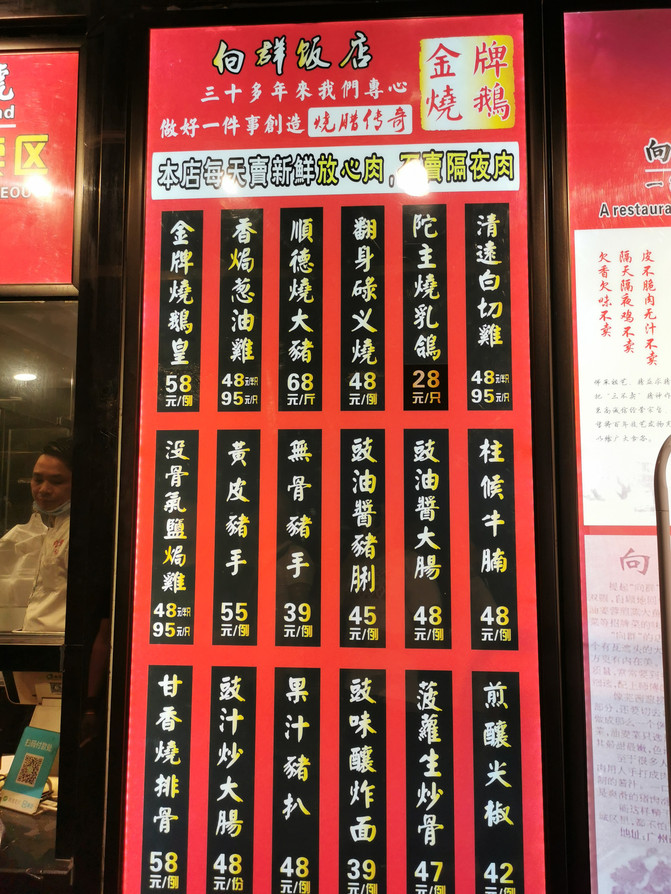 向群饭店
三十多年來我們專心
做好一件事創造 燒腊传奇
金牌
燒鵝
本店每天賣新鮮放心肉,不賣隔夜肉
金牌燒鵝皇
58
元/例
香焗葱油雞
48元/半只
95元/只
順德燒大豬
68
元/斤
翻身碌义燒
48
元/例
陀主燒乳鴿
28
元/只
清遠白切雞
48元/半只
95元/只
没骨氣鹽焗雞
48元/半只
95元/只
黃皮豬手
55
元/例
無骨豬手
39
元/例
豉油醬豬脷
45
元/例
豉油醬大腸
48
元/例
柱候牛腩
48
元/例
甘香燒排骨
58
元/例
豉汁炒大腸
48
元/份
果汁豬扒
48
元/例
豉味釀炸面
39
元/例
菠蘿生炒骨
47
元/例
煎釀尖椒
42
元/例
区
向
一
A restaura
皮不脆肉无汁不卖
隔天隔夜鸡不卖
欠香欠味不卖
向